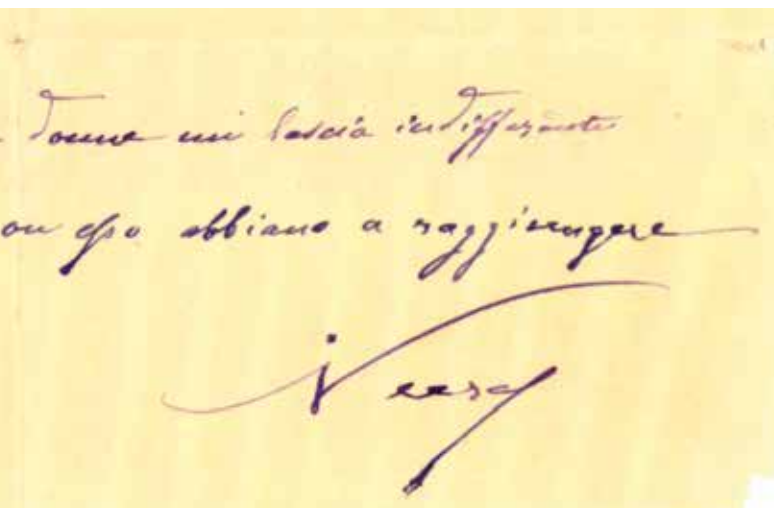 donne mi lascia indifferente
on esso abbiano a raggiungere
Neera